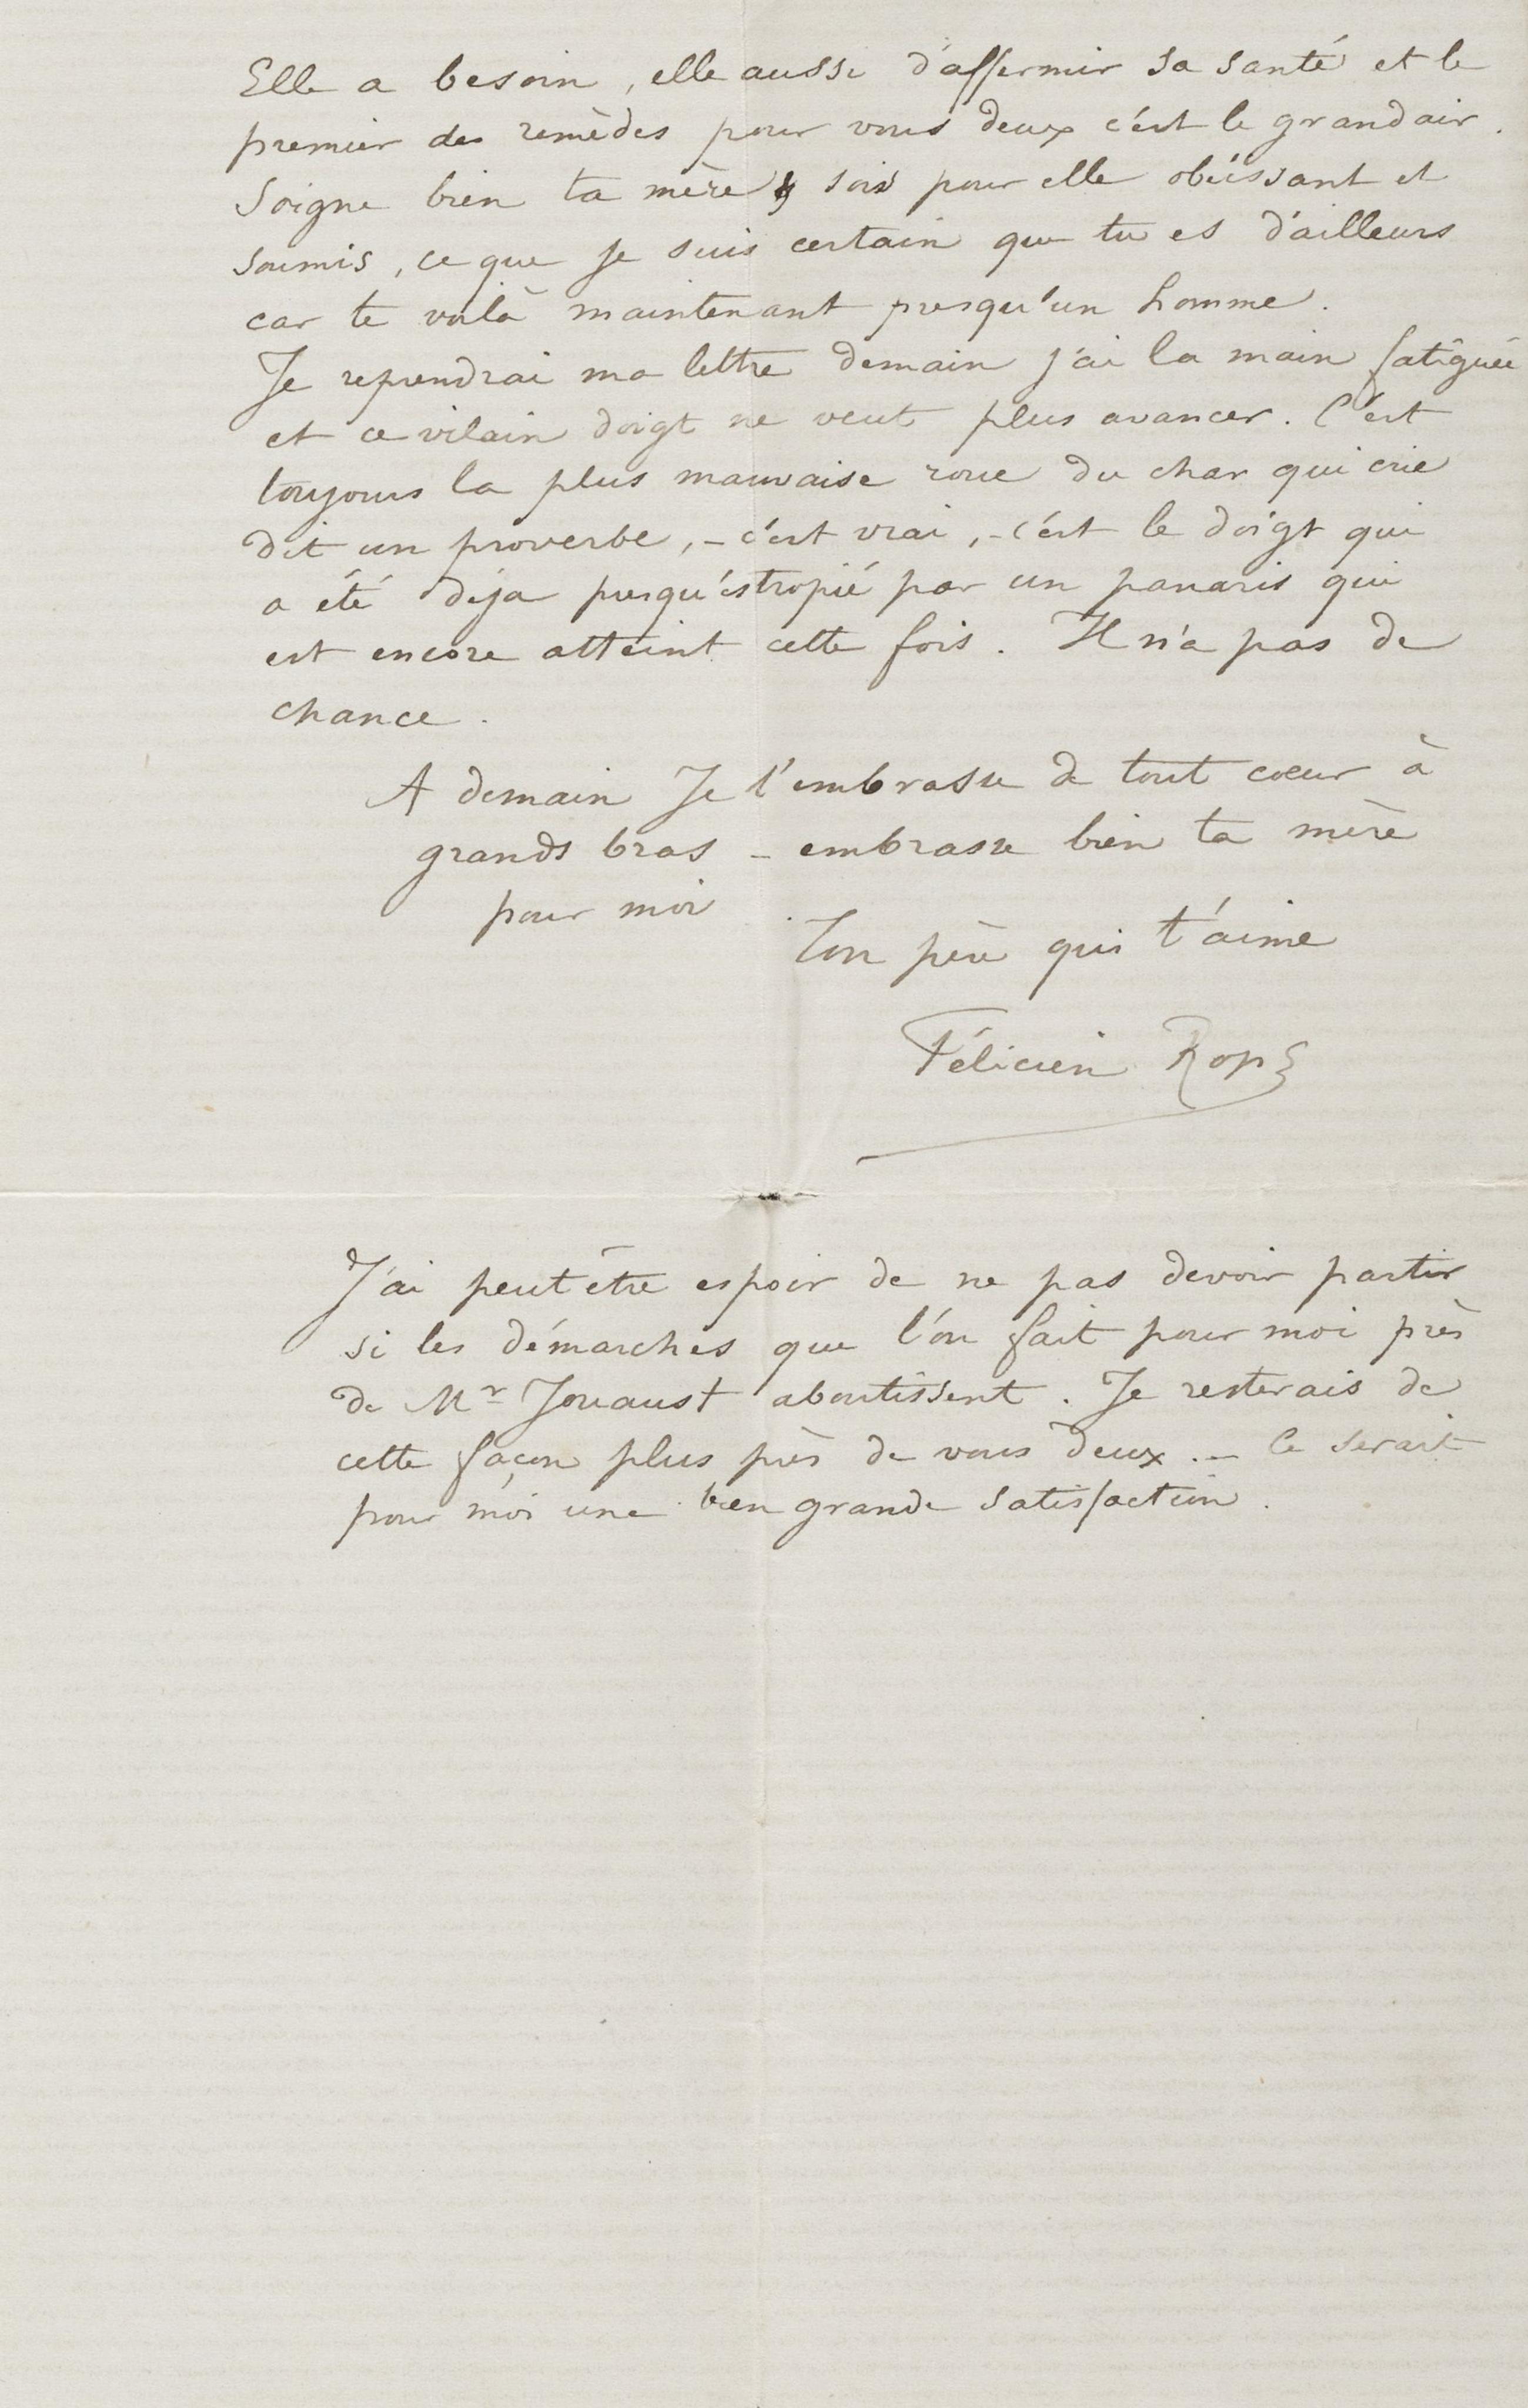 Elle a besoin, elle aussi d'affermir sa santé et le
premier des remèdes pour vous deux c'est le grand air.
Soigne bien ta mère, sois pour elle obéissant et
soumis, ce que je suis certain que tu es d'ailleurs
car te voilà maintenant presqu'un homme.
Je reprendrai ma lettre demain j'ai la main fatiguée
et ce vilain doigt ne veut plus avancer. C'est
toujours la plus mauvaise roue du char qui crie
dit un proverbe, – c'est vrai, – c'est le doigt qui
a été déja presqu'éstropié par un panaris qui
est encore atteint cette fois. Il n'a pas de
chance.
A demain Je t'embrasse de tout coeur à
grands bras – embrasse bien ta mère
pour moi
Ton père qui t'aime
Félicien Rops
J'ai peut être espoir de ne pas devoir partir
si les démarches que l'on fait pour moi près
de Mr Jouaust aboutissent. Je resterais de
cette façon plus près de vous deux. – Ce serait
pour moi une bien grande satisfaction.